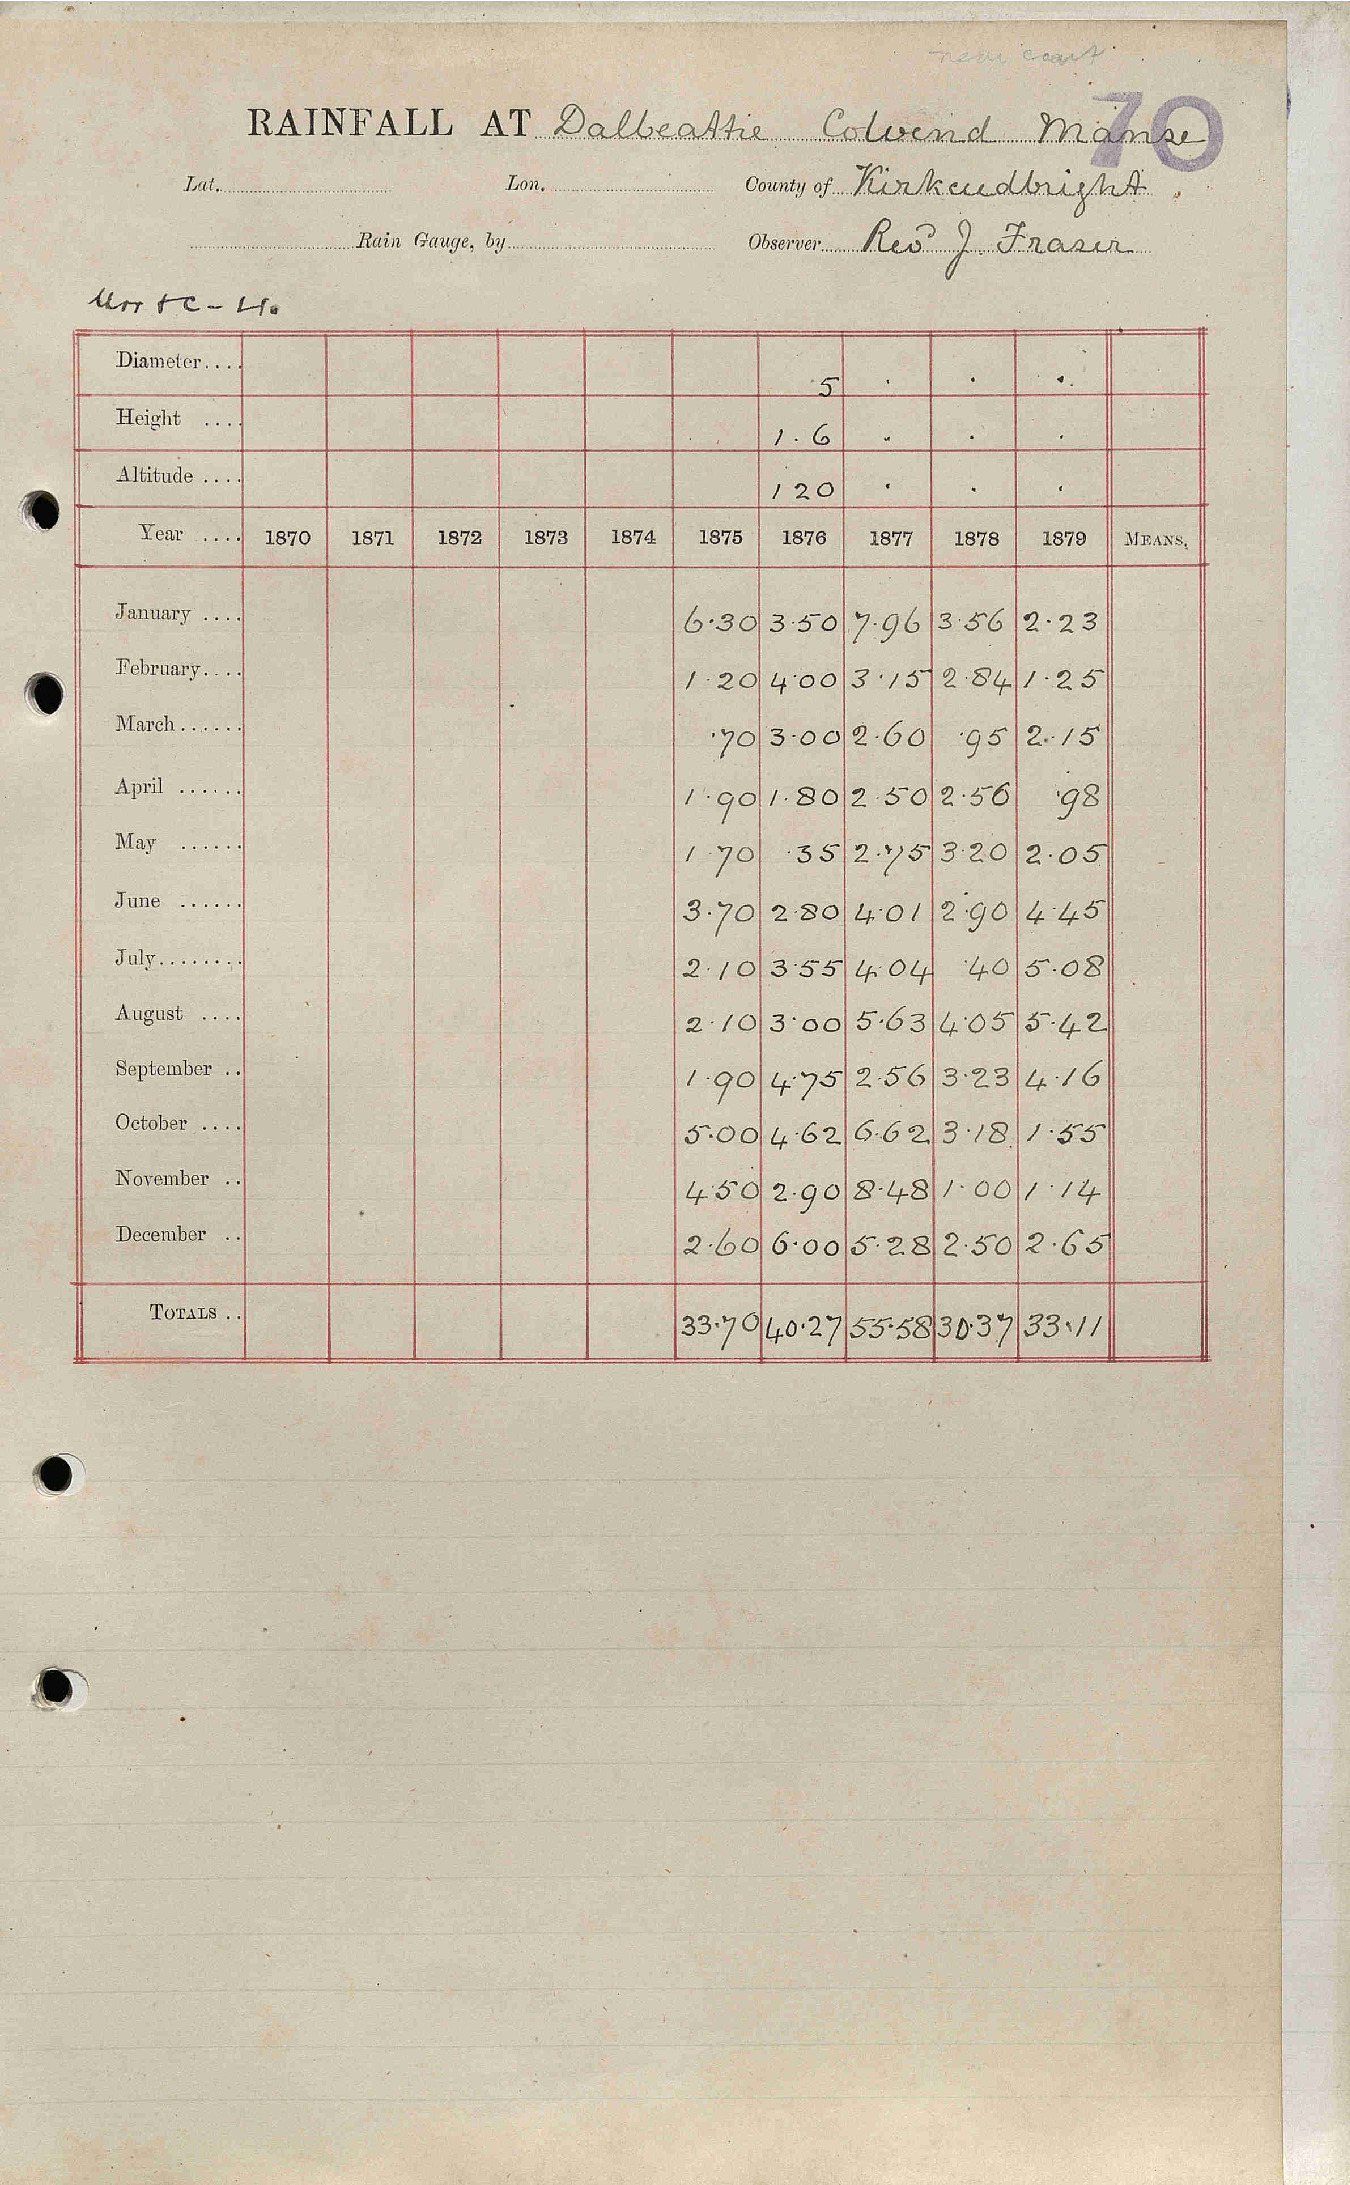 near coast
70
RAINFALL AT Dalbeattie Colvend Manse
Lat. Lon. County of Kirkcudbright
Rain Gauge, by Observer Revd J. Fraser
Diameter.... 5 . . .
Height .... 1.6 . . .
Altitude .... 120 . . .
Year .... 1870 1871 1872 1873 1874 1875 1876 1877 1878 1879 MEANS.
January .... 6.30 3.50 7.96 3.56 2.23
February.... 1.20 4.00 3.15 2.84 1.25
March...... .70 3.00 2.60 .95 2.15
April ...... 1.90 1.80 2.50 2.56 .98
May ...... 1.70 .35 2.75 3.20 2.05
June ...... 3.70 2.80 4.01 2.90 4.45
July........ 2.10 3.55 4.04 .40 5.08
August .... 2.10 3.00 5.63 4.05 5.42
September .. 1.90 4.75 2.56 3.23 4.16
October .... 5.00 4.62 6.62 3.18 1.55
November .. 4.50 2.90 8.48 1.00 1.14
December .. 2.60 6.00 5.28 2.50 2.65
TOTALS .. 33.70 40.27 55.58 30.37 33.11